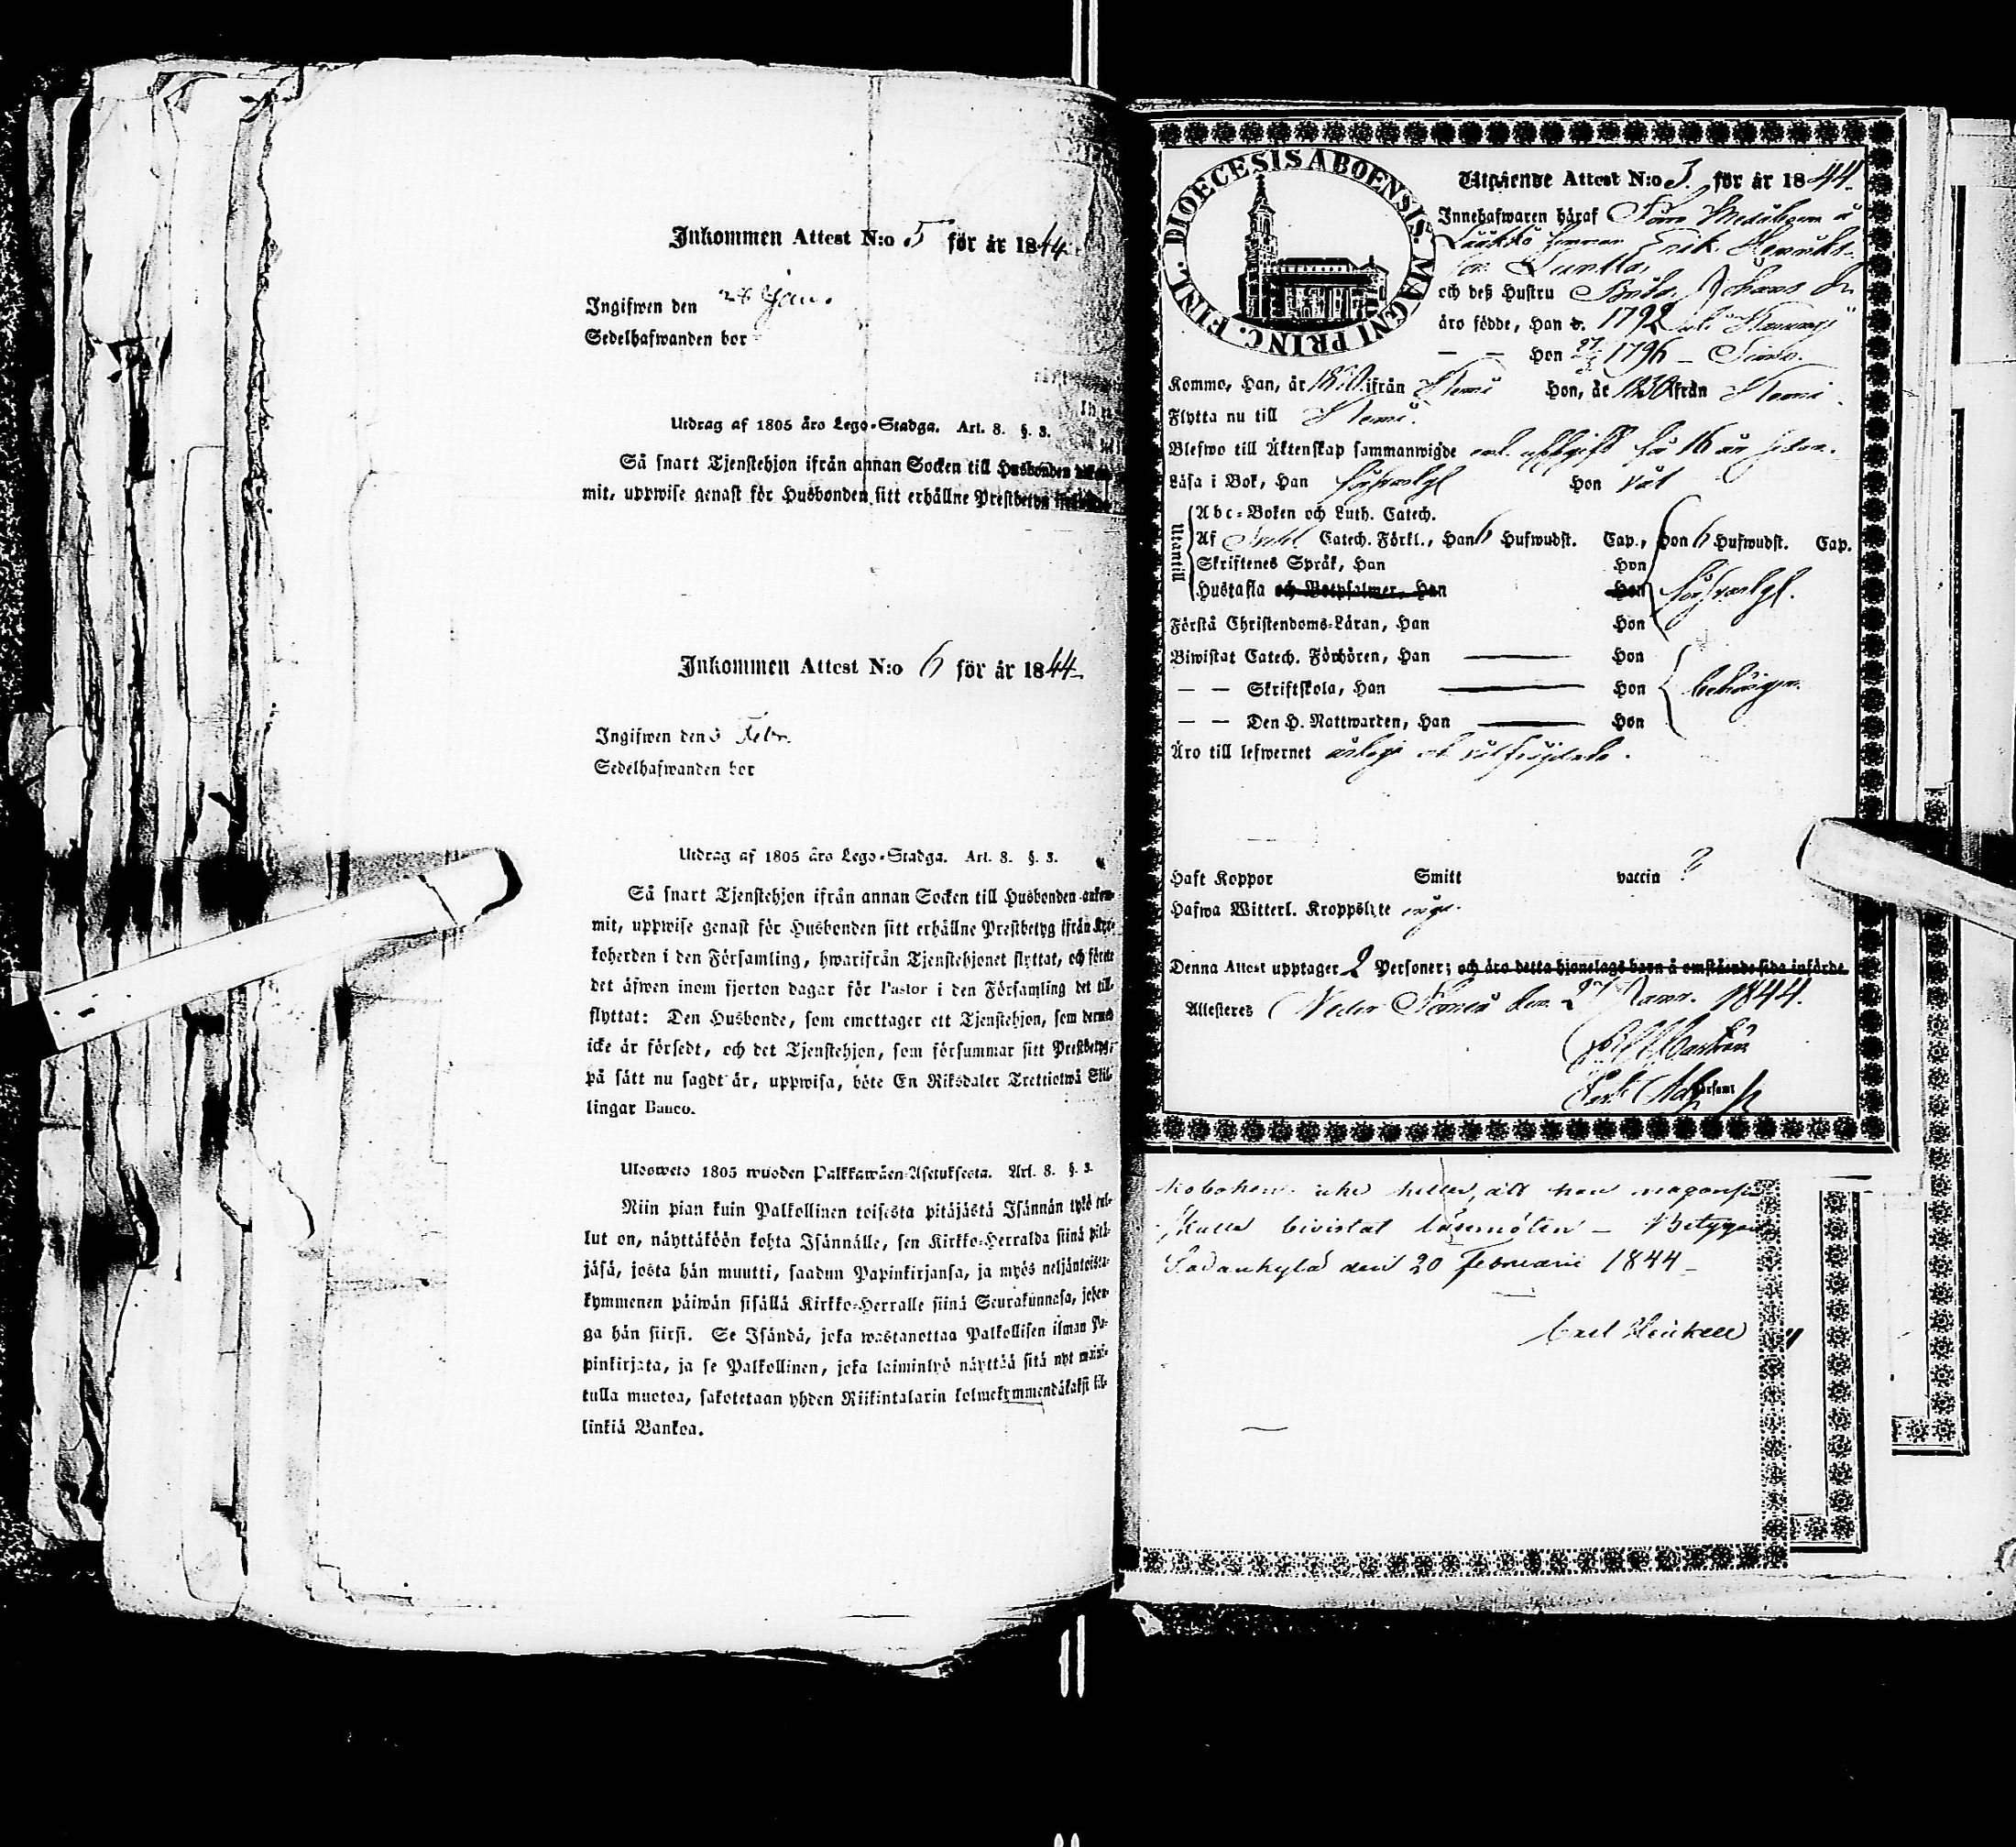 Inkommen Attest N:o 5 för år 1844.
Ingifwen den 28 Jan.
Sedelhafwanden bor
Utdrag af 1805 års Lego-Stadga. Art. 8. §. 3.
Så snart Tjenstehjon ifrån annan Socken till Husbonden
mit, uppwise genast för Husbonden sitt erhållne Prestbetyg
Inkommen Attest N:o 6 för år 1844
Ingifwen den 3 Febr.
Sedelhafwanden bor
Utdrag af 1805 års Lego-Stadga. Art. 8. §. 3.
Så snart Tjenstehjon ifrån annan Socken till Husbonden ankom-
mit, uppwise genast för Husbonden sitt erhållne Prestbetyg ifrån Kyr-
koherden i den Församling, hwarifrån Tjenstehjonet flyttat, och förete
det äfwen inom fjorton dagar för Pastor i den Församling det till-
flyttat: Den Husbonde, som emottager ett Tjenstehjon, som dermed
icke är försedt, och det Tjenstehjon, som försummar sitt Prestbetyg,
på sätt nu sagdt är, uppwisa, böte En Riksdaler Trettiotwå Skil-
lingar Banco.
Ulosweto 1805 wuoden Palkkawäen-Asetuksesta. Art. 8. §. 3.
Niin pian kuin Palkollinen toisesta pitäjästä Isännän tykö tul-
lut on, näyttäköön kohta Isännälle, sen Kirkko-Herralda siinä pitä-
jäsä, josta hän muutti, saadun Papinkirjansa, ja myös neljäntoista-
kymmenen päiwän sisällä Kirkko-Herralle siinä Seurakunnasa, johon-
ga hän siirsi. Se Isändä, joka wastanottaa Palkollisen ilman Pa-
pinkirjata, ja se Palkollinen, joka laiminlyö näyttää sitä nyt maini-
tulla muotoa, sakotetaan yhden Riikintalarin kolmekymmendäkaksi kil-
linkiä Bankoa.
DIOECESIS ABOENSIS. MAGNI PRINC. FINL.
Utgående Attest N:o 3. för år 1844.
Innehafwaren häraf
Erik Henriks-
och deß Hustru Brita Johans dr
äro födde, Han d. 1792
— — Hon 1796 — Simo.
Kommo, Han, år 1830 ifrån Kemi Hon, år 1830 ifrån Kemi.
Flytta nu till Kemi.
Blefwo till Äktenskap sammanwigde enl. uppgift för 16 år sedan.
Läsa i Bok, Han försvarligt Hon
Utantill
Abc-Boken och Luth. Catech.
Af Catech. Förkl., Han 6 Hufwudst. Cap., Hon 6 Hufwudst. Cap.
Skriftenes Språk, Han Hon
Hustafla och Botpsalmer, Han Hon försvarligt.
Förstå Christendoms-Läran, Han Hon
Biwistat Catech. Förhören, Han Hon
— — Skriftskola, Han Hon behörigen.
— — Den H. Nattwarden, Han Hon
Äro till lefwernet ärliga och välfräjdade.
Haft Koppor Smitt vaccin ?
Hafwa Witterl. Kroppslyte inga.
Denna Attest upptager 2 Personer; och äro detta hjonelags barn å omstående sida införde.
Attesteras Neder Torneå den 27 Janr. 1844.
icke heller, att han någonsin
skulle bivistat läsemöten — Betygar
Sodankylä den 20 Februarii 1844 —
Carl Heikell